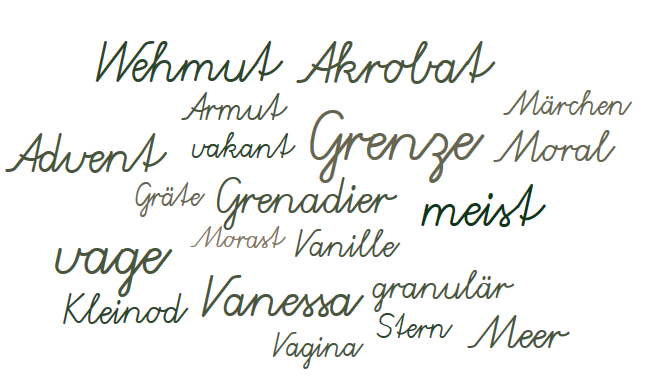 Wehmut Akrobat
Armut Märchen
Advent vakant Grenze Moral
Gräte Grenadier meist
vage Morast Vanille
Kleinod Vanessa granulär
Vagina Stern Meer